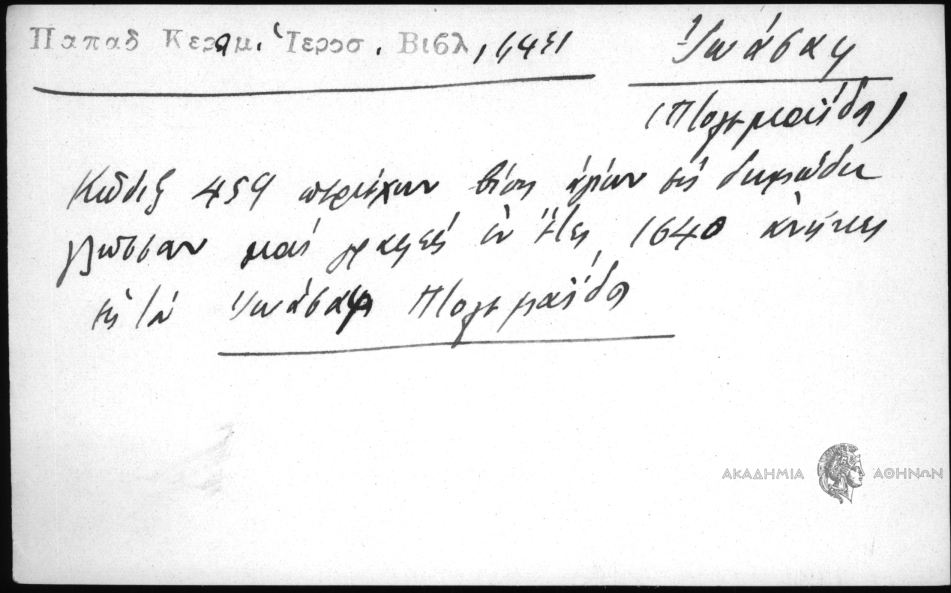 Παπαδ Κεραμ. Ἱεροσ. Βιβλ,
Ἰωάσαφ
(Πτολεμαΐδος)
Κῶδιξ 459 περιέχων βίους ἁγίων εἰς δημώδη
γλῶσσαν καὶ γραφεὶς ἐν ἔτει 1640 ἀνήκει
εἰς τὸν Ἰωάσαφ Πτολεμαΐδος
ΑΚΑΔΗΜΙΑ ΑΘΗΝΩΝ